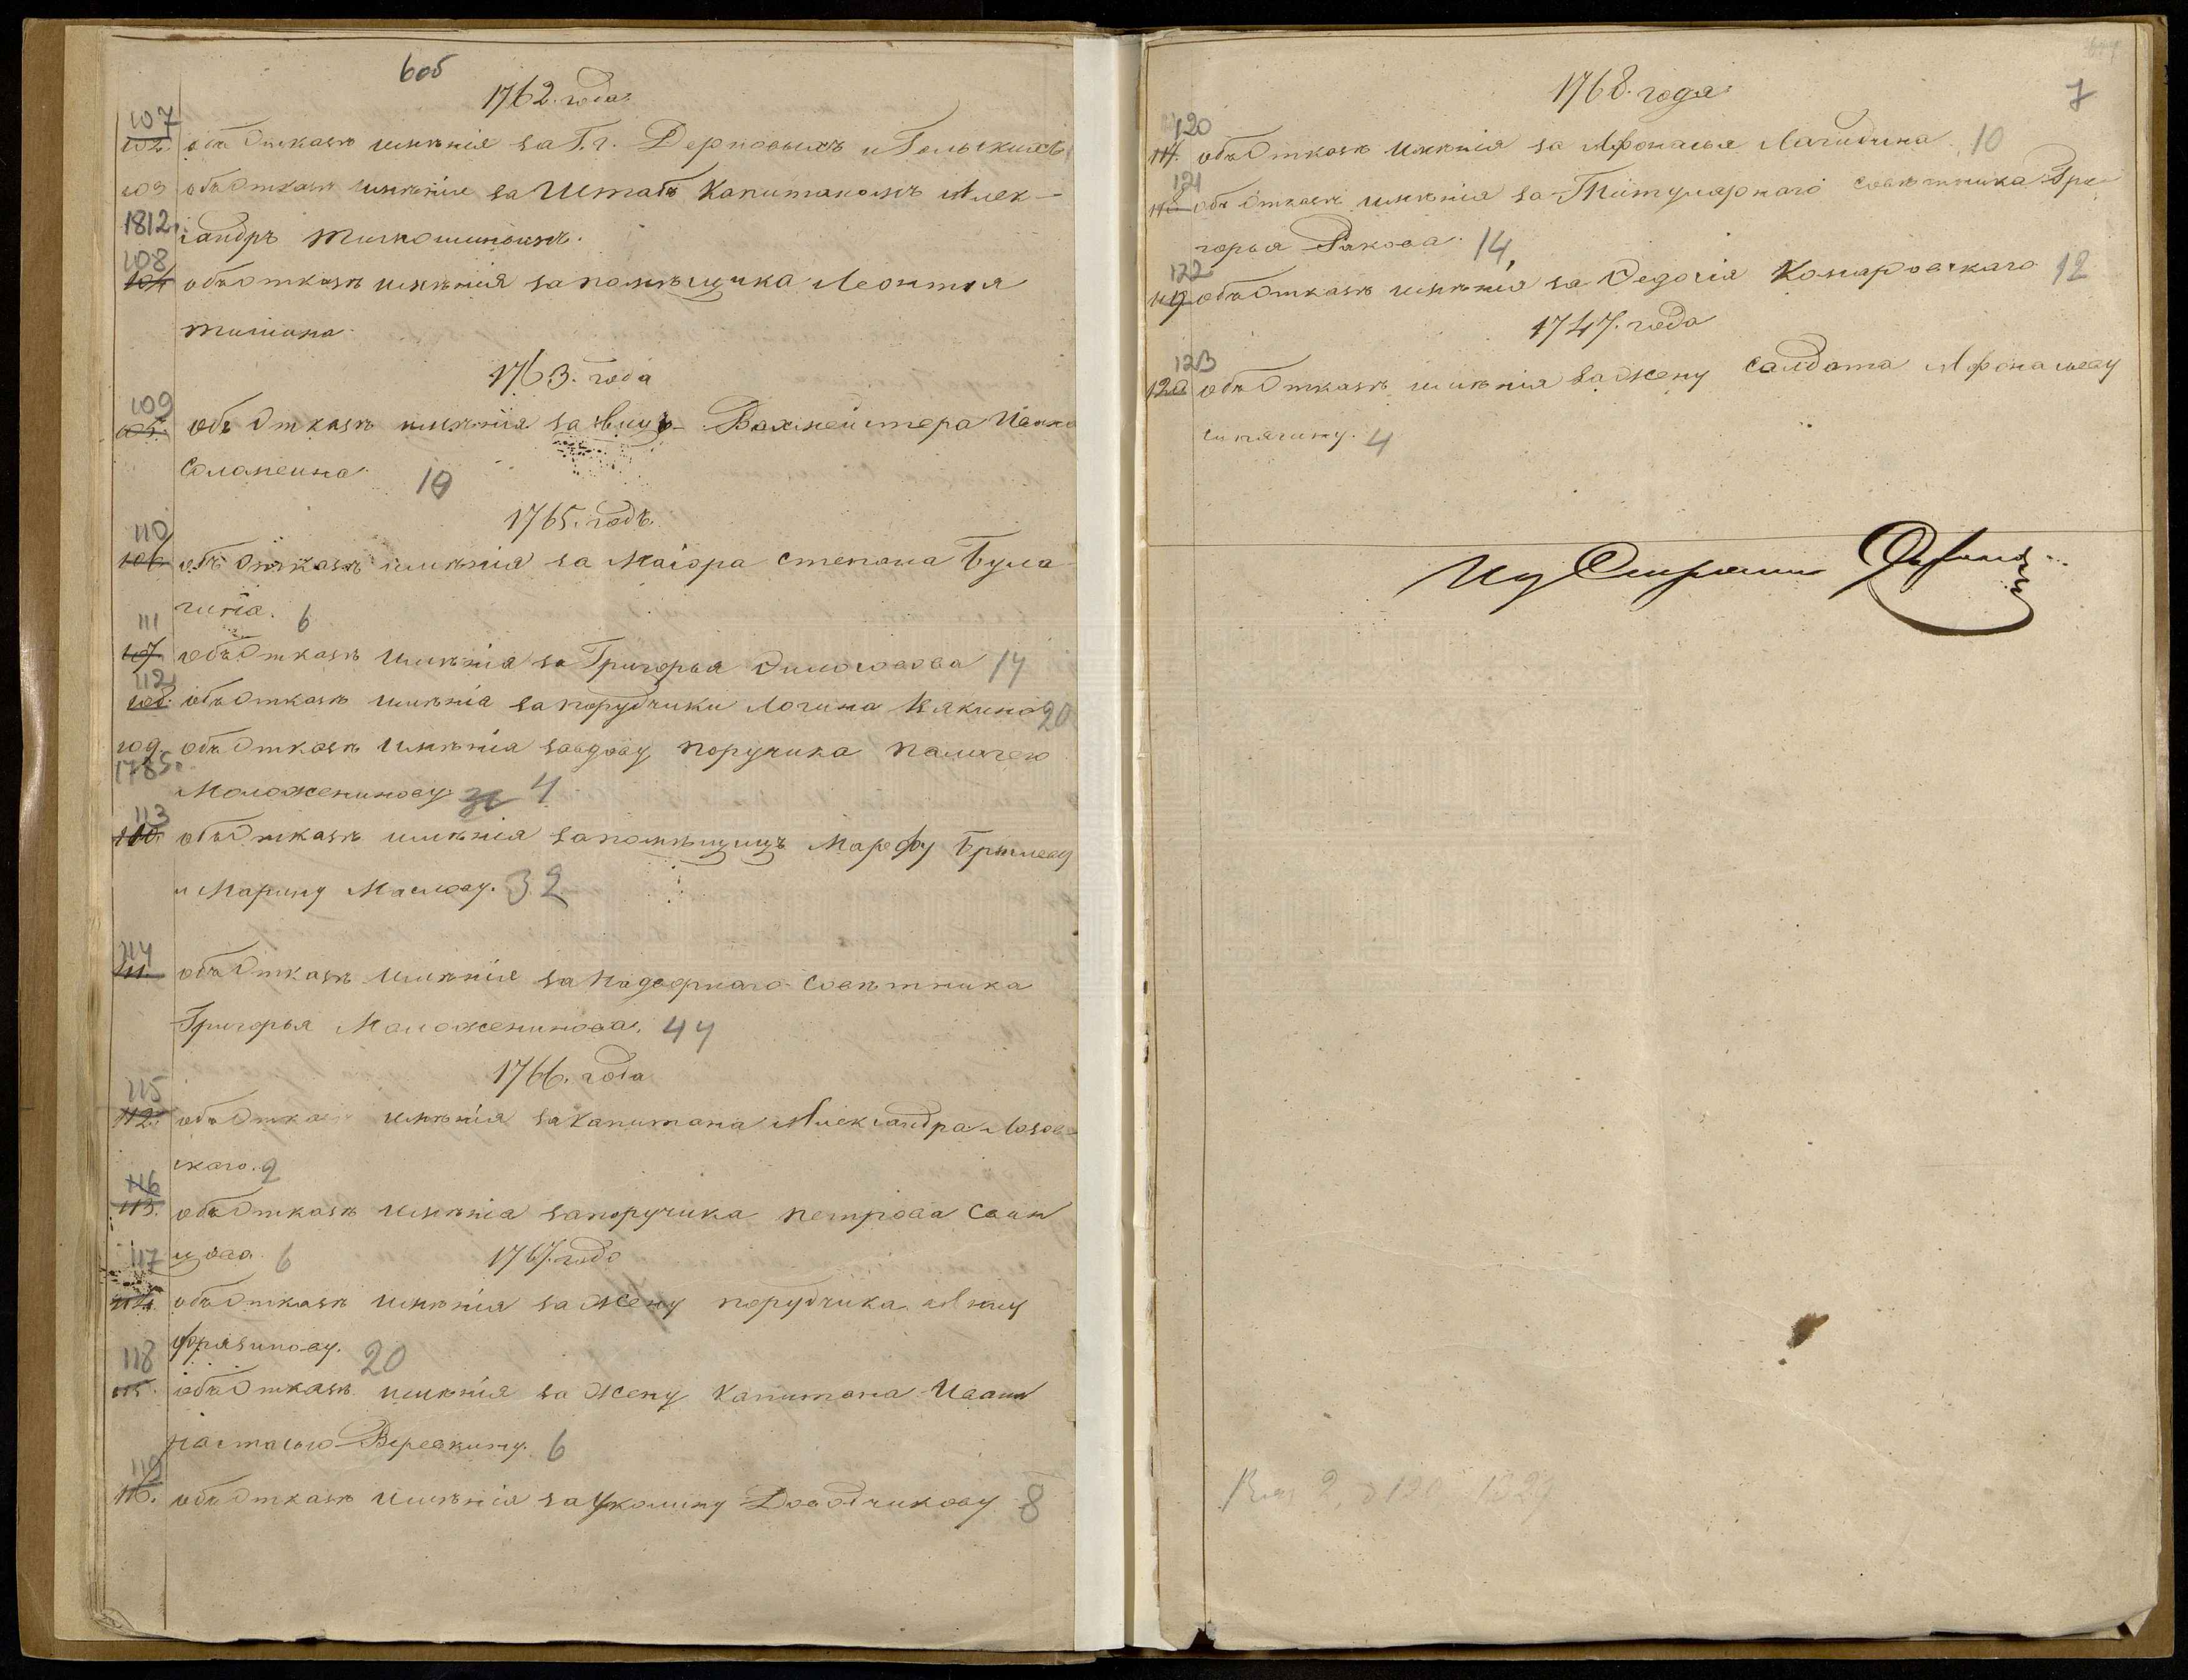 6об
1762. года
107
102. объ Отказѣ имѣнія за Г.г. Дерновыхъ и Гольскихъ
103 объ Отказѣ имѣнія за Штабъ Капитаномъ Алек-
1812. сандръ
108
104 объ отказѣ имѣнія за помѣщика Леонтія
Тишина
1763. года
109
105. объ Отказѣ имѣнія за Вахмейстера Ивана
Соломеина 10
1765. годъ
110
106 объ Отказѣ имѣнія за Маіора Степана Була
гина. 6
111
107 объ Отказѣ имѣнія за Григорья 14
112
108. объ Отказѣ имѣнія за порудчики Логина Якино 20
109. объ Отказѣ имѣнія за вдову поручика Палагею
1785.
Моложенинову 4
113
110. объ Отказѣ имѣнія за помѣщицъ Марефу Брылеву
и Марину Маслову. 32
114
111. объ Отказѣ имѣнія за Надворнаго Совѣтника
Григорья Моложенинова. 44
1766. года
115
112. объ Отказѣ имѣнія за Капитана Александра Лозов-
скаго. 2
116
113. объ Отказѣ имѣнія за поручика Петрова Свин
цова 6 1767. года
117
114. объ Отказѣ имѣнія за Жену порудчика Анну
Фрязинову. 20
118
115. объ Отказѣ имѣнія за Жену Капитана Иваши
Настасью Веревкину. 6
119
116. объ Отказѣ имѣнія за Уколину Доводчикову 8
7
1768. года
120
117. объ Отказѣ имѣнія за Афонасья Лагидина 10
121
118 объ Отказѣ имѣнія за Титулярнаго совѣтника Гри
горья Ракова. 14
122
119 объ Отказѣ имѣнія за Федосія Комаровскаго 12
1747. года
123
120 объ Отказѣ имѣнія за Жену Салдата Афонасьеву
Синягину. 4